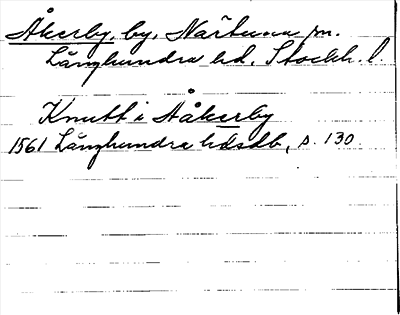 Åkerby, by, Närtuna sn.
Långhundra hd, Stockh. l.
Knutt i Aåkerby
1561 Långhundra hdsdb, s. 130